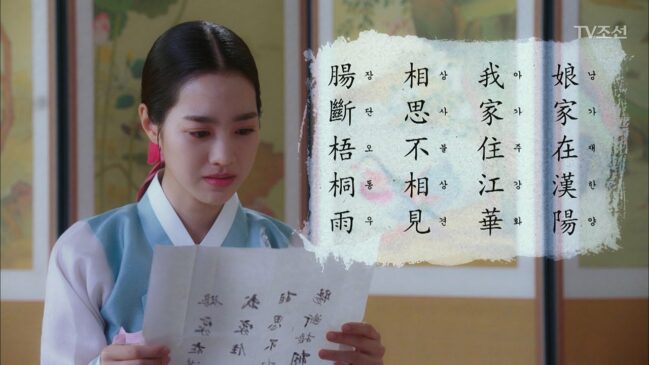 TV조선
娘家在漢陽
낭가재한양
我家住江華
아가주강화
相思不相見
상사불상견
腸斷梧桐雨
장단오동우